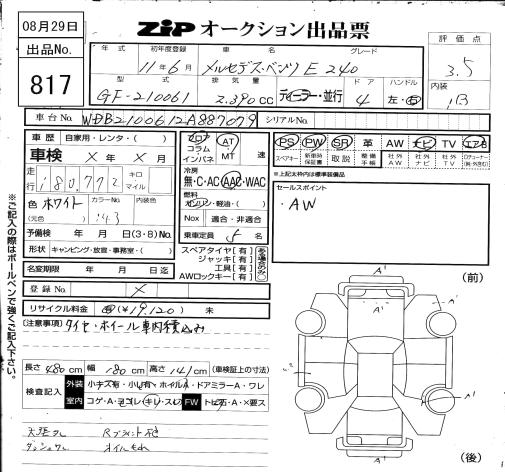 08月29日
ZIP オークション出品票
出品No.
817
年式 初年度登録 車名 グレード
11年6月 メルセデス・ベンツ E240
評価点
3.5
型式 排気量 ドア ハンドル
GF-210061 2,390cc ディーラー・並行 4 左・右
内装
B
車台No. WDB2100612A887079 シリアルNo.
車歴 自家用・レンタ・( )
車検 ×年 ×月
走行 180,772 キロ マイル
色 ホワイト カラーNo. 143 内装色
(元色)
予備検 年 月 日(3・8)No.
形状 キャンピング・放宣・事務室・( )
名変期限 年 月 日迄
フロア コラム インパネ AT・MT 速
冷房
無・C・AC・AAC・WAC
燃料
ガソリン・軽油・( )
Nox 適合・非適合
乗車定員 5名
スペアタイヤ【有】
ジャッキ【有】
工具【有】
AWロックキー【有】
PS PW SR 革 AW ナビ TV エアB
スペアキー 新車時保証書 取説 整備手帳 社外AW 社外ナビ 社外TV
※上記太枠内は標準装備品
セールスポイント
・AW
登録No. ×
リサイクル料金 (¥19,120) 未
(注意事項) タイヤ・ホイール車内積込み
長さ 480cm 幅 180cm 高さ 141cm (車検証上の寸法)
検査記入 外装 小キズ有・小凹有・ホイルキズ・ドアミラーA・ワレ
室内 コゲA・ヨゴレ・キリ・スレ FW トビ石A・×要ス
天張ワレ Rプリント
ダッシュワレ オイルもれ
※ご記入の際はボールペンで強くご記入下さい。
(前)
A'
A'
A'
A'
(後)